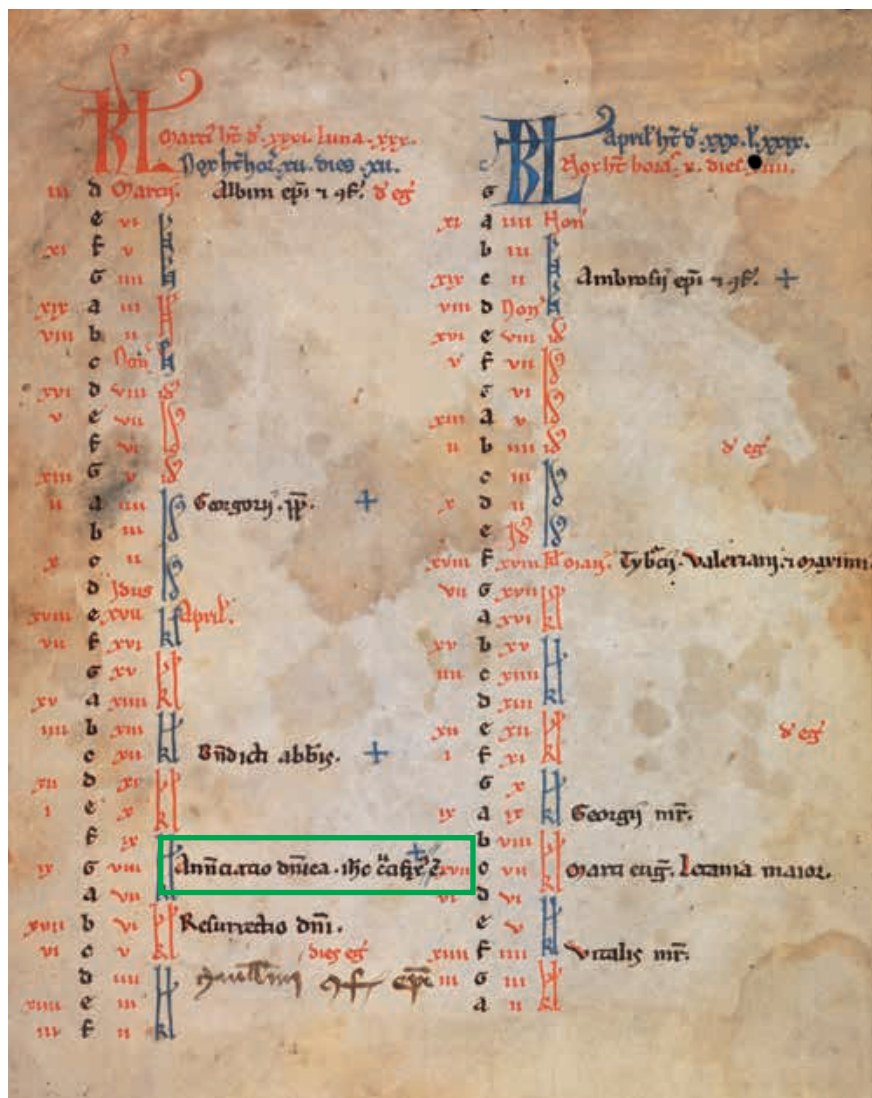 KL Marci' ht d'. xxxi. luna. xxx.
Nox ht hor'. xii. dies. xii.
iii d Marcij. Albini epi 7 9f'. d' eg'
e vi
xi f v
G iiii
xix a iii
viii b ii
c Non'
xvi d viii id'
v e vii
f vi
xiii G v id'
ii a iiii Georgorij. pp. +
b iii
x c ii
d Idus
xviii e xvii kl April'.
vii f xvi
G xv kl
xv a xiiii
iiii b xiii kl
c xii Bndicti abbis. +
xii d xi kl
i e x
f ix kl
ix G viii Annciatio dnica. ihc +
a vii
xvii b vi kl Resurrectio dni.
vi c v dies eg'
d iiii kl 9f epi
xiiii e iii
iii f ii
KL April' ht d'. xxx. l'. xxix.
Nox ht horas. x. dies. iiii.
G
xi a iiii Non'
b iii
xix c ii Ambrosij epi 7 9f'. +
viii d Non'
xvi e viii id'
v f vii
G vi
xiii a v
ii b iiii id' d' eg'
c iii
x d ii
e Id'
xviii f xviii kl Maij. Tyb'cij. Valeriani. 7 Maximi
vii G xvii
a xvi kl
xv b xv
iiii c xiiii kl
d xiii
xii e xii kl d' eg'
i f xi
G x
ix a ix kl Georgij mr'.
b viii
xvii c vii kl Marci eug'. Letania maior.
vi d vi
e v
xiiii f iiii kl Vitalis mr'.
iii G iii
a ii kl